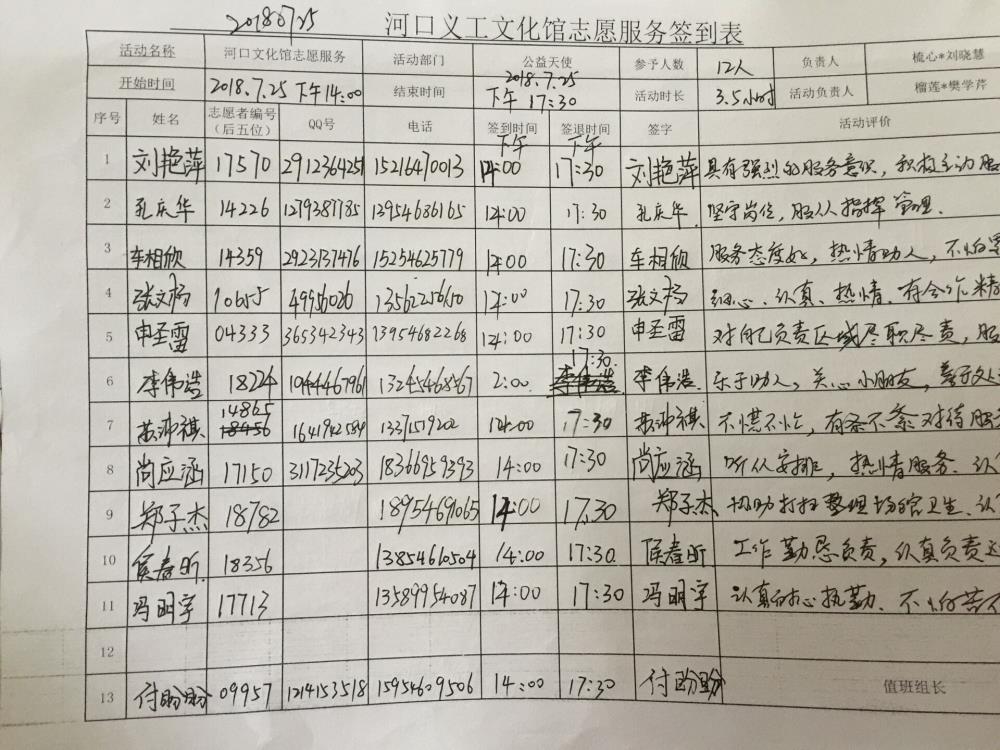 2018.07.25 河口义工文化馆志愿服务签到表
活动名称 河口文化馆志愿服务 活动部门 公益天使 参予人数 12人 负责人 梳心*刘晓慧
开始时间 2018.7.25 下午14:00 结束时间 2018.7.25 下午 17:30 活动时长 3.5小时 活动负责人 榴莲*樊学芹
序号 姓名 志愿者编号(后五位) QQ号 电话 签到时间 下午 签退时间 下午 签字 活动评价
1 刘艳萍 17570 2912364251 15216470013 14:00 17:30 刘艳萍 具有强烈的服务意识，积极主动服
2 孔庆华 14226 1279387785 13954686165 14:00 17:30 孔庆华 坚守岗位，服从指挥管理.
3 车相欣 14359 2923137476 15254625779 14:00 17:30 车相欣 服务态度好，热情助人，不怕
4 张文杨 10655 49956026 13562256150 14:00 17:30 张文杨 细心、认真、热情、有合作精
5 申圣雷 04333 365342343 13954682268 14:00 17:30 申圣雷 对自己负责区域尽职尽责，服
6 李伟浩 18224 1044467961 13245468867 2:00 17:30. 李伟浩. 乐于助人，关心小朋友，善于处
7 14865 1641942584 13371519202 14:00 17:30 不慌不忙，有条不紊对待服
8 尚应涵 17150 3117235203 18366959393 14:00 17:30 尚应涵 听从安排，热情服务、认
9 郑子杰 18782 18954691065 14:00 17:30 郑子杰 协助打扫整理场馆卫生、认
10 侯春昕 18356 13854610504 14:00 17:30. 侯春昕 工作勤恳负责，认真负责
11 冯明宇 17713 13589954087 14:00 17:30 冯明宇 认真耐心执勤、不怕苦不
12
13 付盼盼 09957 1214153518 15954609506 14:00 17:30 付盼盼 值班组长